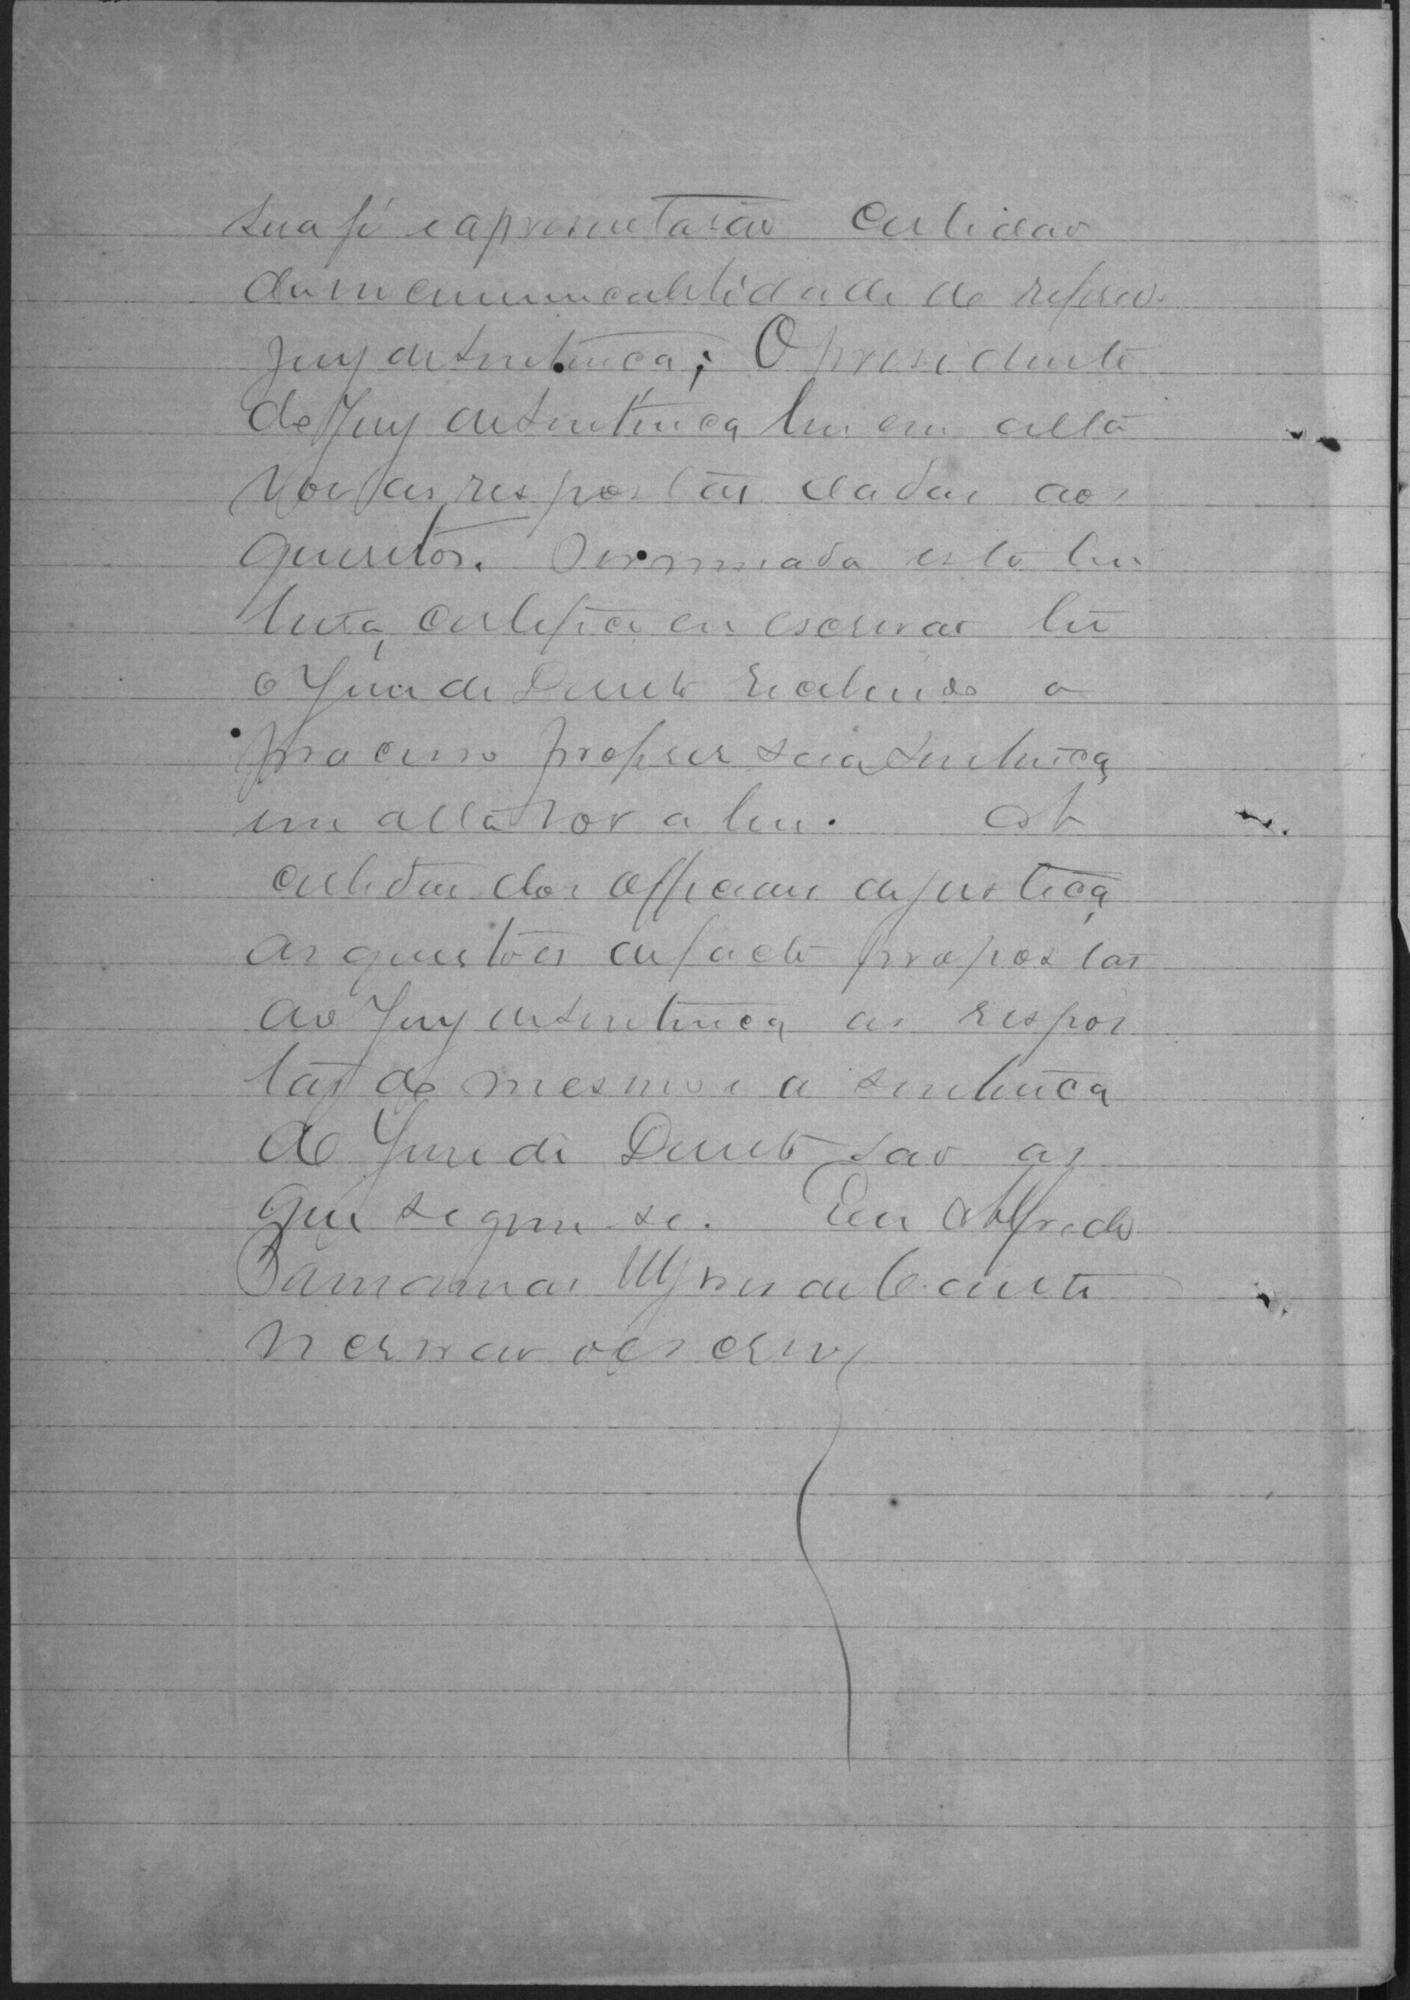 sua fé e apresentarão certidão
da incommunicabilidade do referido
Jury de Sentença; O presidente
do Jury de Sentença leu em alta
voz as respostas dadas aos
quesitos. Terminada esta lei
tura, certifico eu escrivão
o Juiz de Direito recebendo o
processo proferio sua Sentença
em alta voz a leu. As
certidões dos officiaes de justiça
as questões de facto propostas
ao Jury de Sentença as respos
tas do mesmo e a sentença
do Juiz de Direito são as
que seguem se. Eu Alfredo
escrivão o escrevy